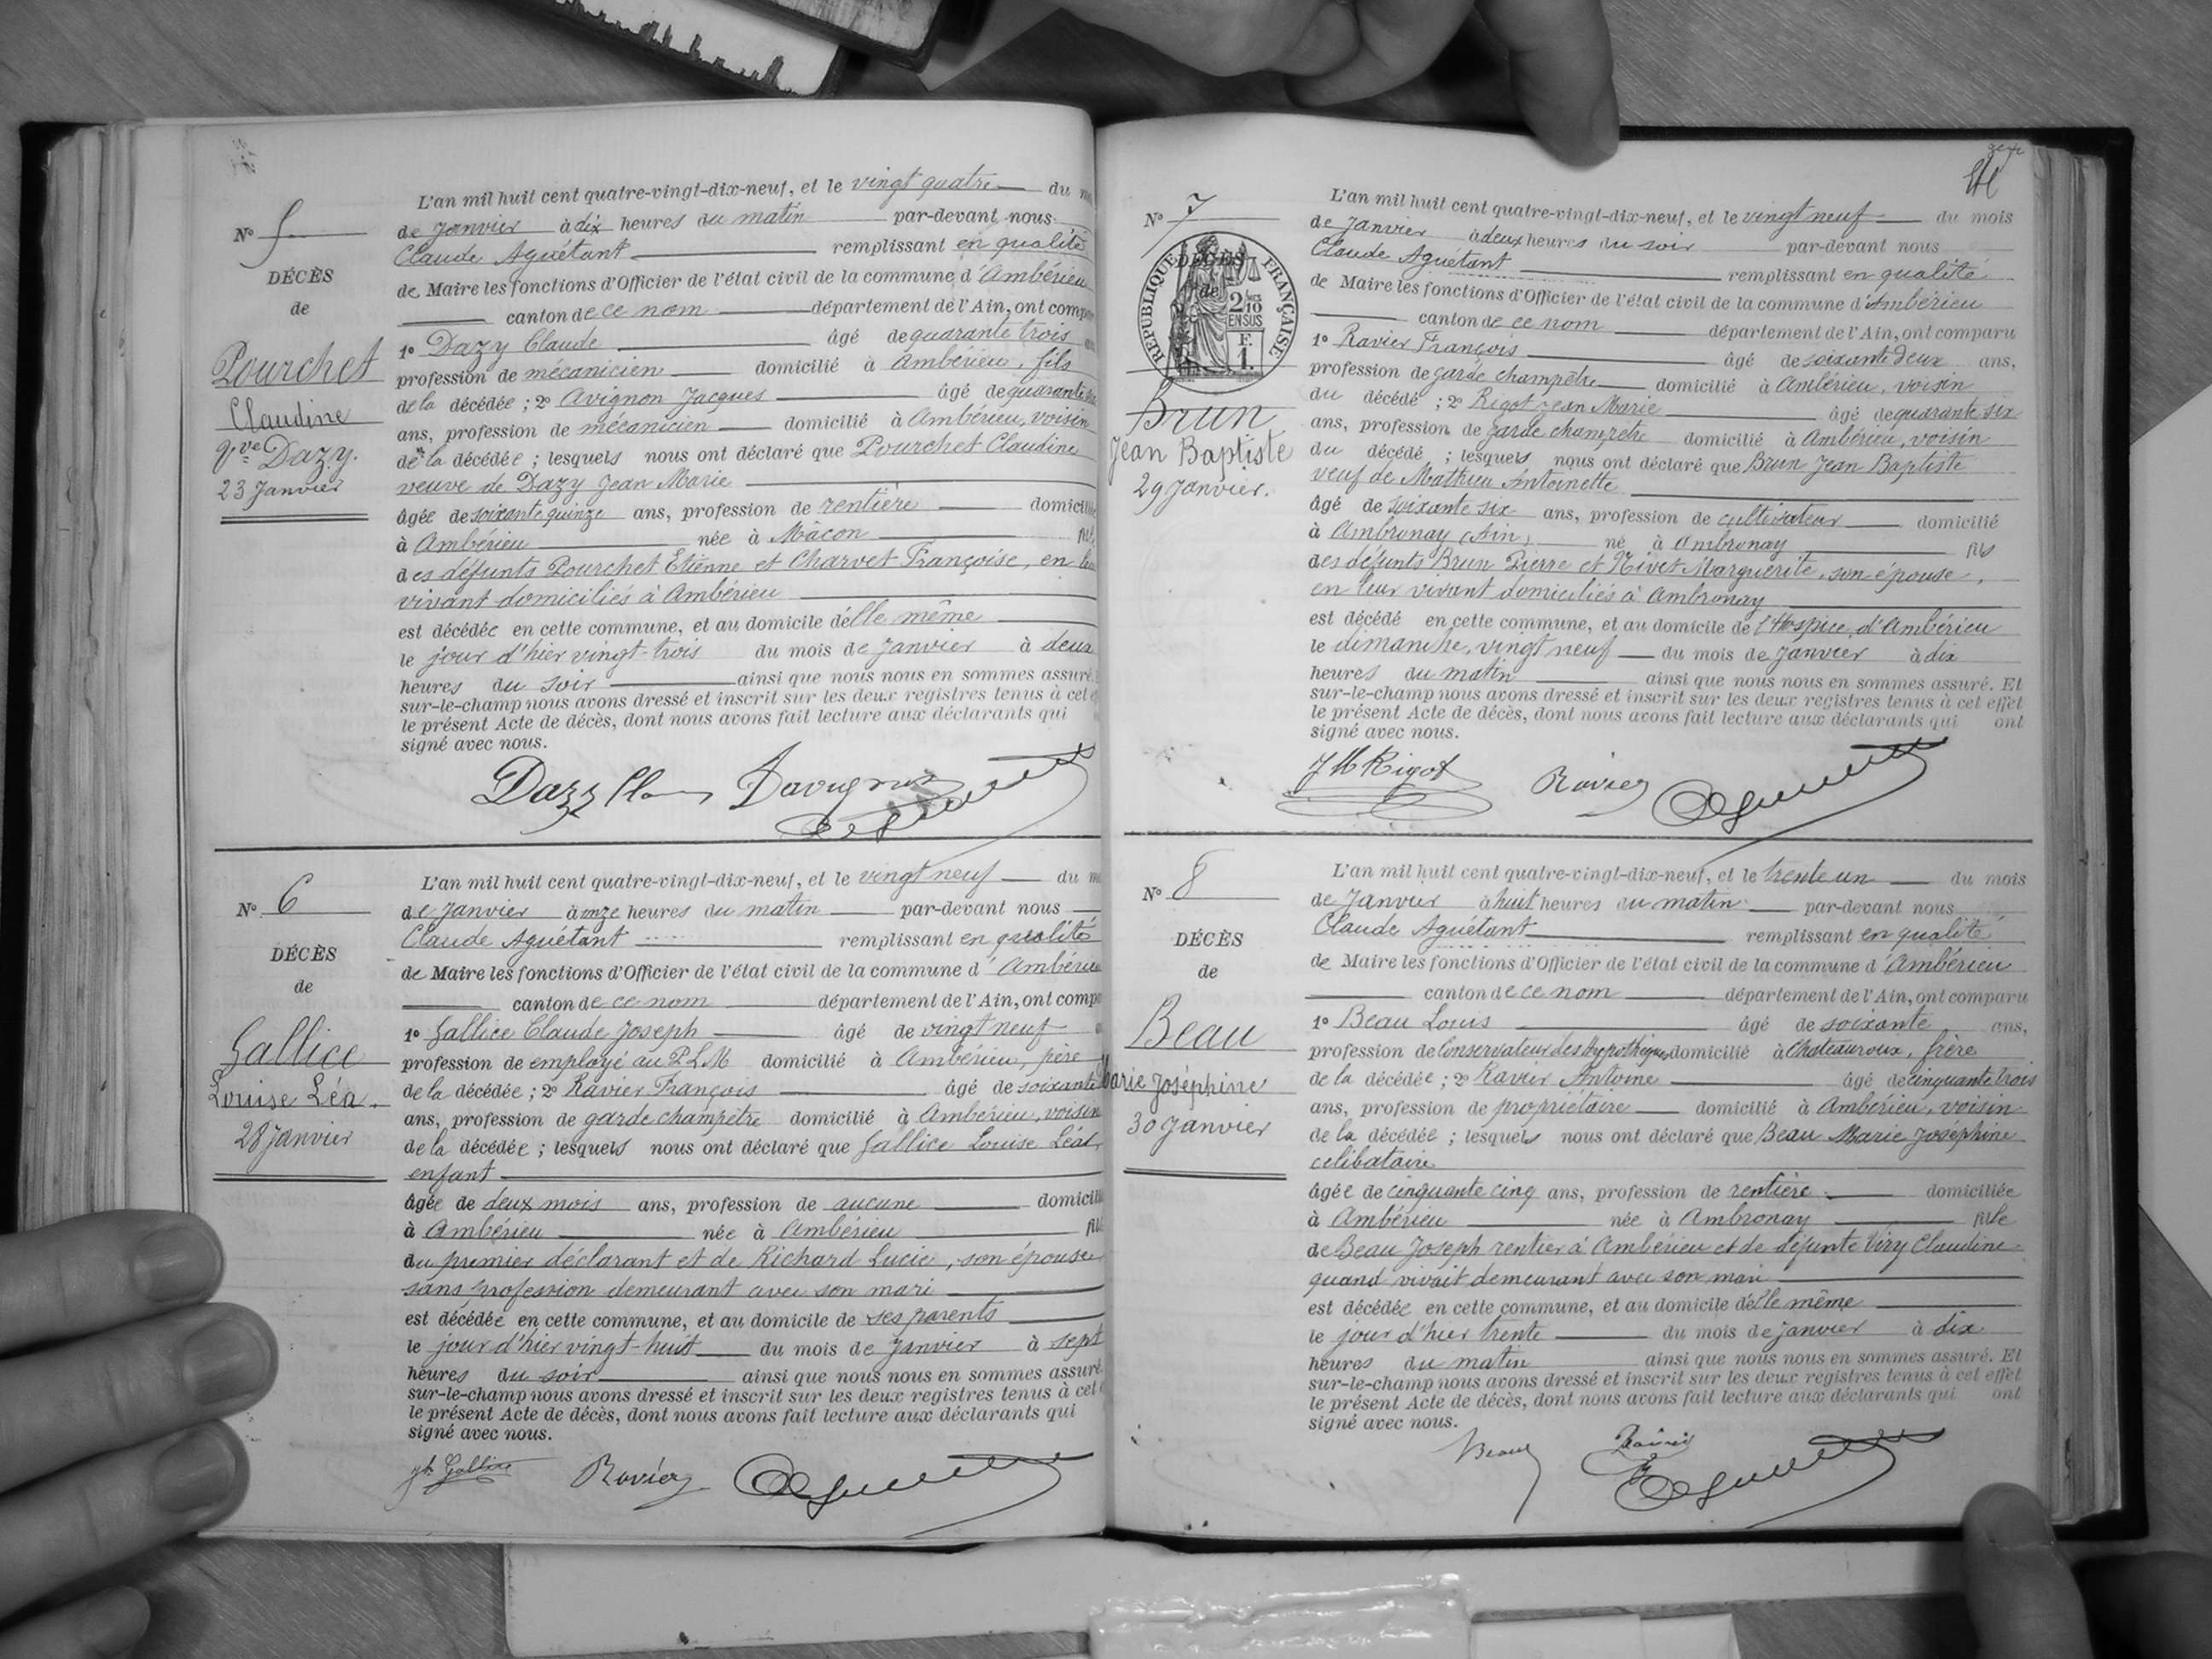 L'an mil huit cent quatre-vingt-dix-neuf, et le vingt quatre du
de Janvier à dix heures du matin par-devant nous
Claude Aguétant remplissant en qualité
de Maire les fonctions d'Officier de l'état civil de la commune d'Ambérieu
canton de ce nom département de l'Ain, ont comp
1º Dazy Claude âgé de quarante trois
profession de mécanicien domicilié à Ambérieu, fils
de la décédée ; 2º Avignon Jacques âgé de quarante
ans, profession de mécanicien domicilié à Ambérieu, voisin
de la décédée ; lesquels nous ont déclaré que Pourchet Claudine
veuve de Dazy Jean Marie
âgée de soixante quinze ans, profession de rentière domicilié
à Ambérieu née à Mâcon fil
des défunts Pourchet Etienne et Charvet Françoise, en leu
vivant domiciliés à Ambérieu
est décédée en cette commune, et au domicile d'elle même
le jour d'hier vingt-trois du mois de Janvier à deux
heures du soir ainsi que nous nous en sommes assuré.
sur-le-champ nous avons dressé et inscrit sur les deux registres tenus à cet e
le présent Acte de décès, dont nous avons fait lecture aux déclarants qui
signé avec nous.
Nº 5
DÉCÈS
de
Pourchet
Claudine
Vve Dazy.
23 Janvier
Nº 6
DÉCÈS
de
Gallice
Louise Léa.
28 Janvier
L'an mil huit cent quatre-vingt-dix-neuf, et le vingt neuf du m
de Janvier à onze heures du matin par-devant nous
Claude Aguétant remplissant en qualité
de Maire les fonctions d'Officier de l'état civil de la commune d'Ambérieu
canton de ce nom département de l'Ain, ont comp
1º Gallice Claude Joseph âgé de vingt neuf
profession de employé au P.L.M domicilié à Ambérieu, père
de la décédée ; 2º Ravier François âgé de soixante
ans, profession de garde champêtre domicilié à Ambérieu, voisin
de la décédée ; lesquels nous ont déclaré que Gallice Louise Léa
enfant
âgée de deux mois ans, profession de aucune domicili
à Ambérieu née à Ambérieu fil
du premier déclarant et de Richard Lucie, son épouse
sans profession demeurant avec son mari
est décédée en cette commune, et au domicile de ses parents
le jour d'hier vingt-huit du mois de Janvier à sept
heures du soir ainsi que nous nous en sommes assuré
sur-le-champ nous avons dressé et inscrit sur les deux registres tenus à cet
le présent Acte de décès, dont nous avons fait lecture aux déclarants qui
signé avec nous.
Jh Gallice Ravier
Nº 7
RÉPUBLIQUE FRANÇAISE
DÉCÈS
de
2/10
EN SUS
F.
1.
Brun
Jean Baptiste
29 Janvier.
L'an mil huit cent quatre-vingt-dix-neuf, et le vingt neuf du mois
de Janvier à deux heures du soir par-devant nous
Claude Aguétant remplissant en qualité
de Maire les fonctions d'Officier de l'état civil de la commune d'Ambérieu
canton de ce nom département de l'Ain, ont comparu
1º Ravier François âgé de soixante deux ans,
profession de garde champêtre domicilié à Ambérieu, voisin
du décédé ; 2º Rigot Jean Marie âgé de quarante six
ans, profession de garde champêtre domicilié à Ambérieu, voisin
du décédé ; lesquels nous ont déclaré que Brun Jean Baptiste
veuf de Mathieu Antoinette
âgé de soixante six ans, profession de cultivateur domicilié
à Ambronay (Ain) né à Ambronay fils
des défunts Brun Pierre et Nivet Marguerite, son épouse,
en leur vivant domiciliés à Ambronay
est décédé en cette commune, et au domicile de l'Hospice d'Ambérieu
le dimanche, vingt neuf du mois de Janvier à dix
heures du matin ainsi que nous nous en sommes assuré. Et
sur-le-champ nous avons dressé et inscrit sur les deux registres tenus à cet effet
le présent Acte de décès, dont nous avons fait lecture aux déclarants qui ont
signé avec nous.
J M Rigot Ravier
Nº 8
DÉCÈS
de
Beau
Marie Joséphine
30 Janvier
L'an mil huit cent quatre-vingt-dix-neuf, et le trente un du mois
de Janvier à huit heures du matin par-devant nous
Claude Aguétant remplissant en qualité
de Maire les fonctions d'Officier de l'état civil de la commune d'Ambérieu
canton de ce nom département de l'Ain, ont comparu
1º Beau Louis âgé de soixante ans,
profession de Conservateur des hypothèques domicilié à Chateauroux, frère
de la décédée ; 2º Ravier Antoine âgé de cinquante trois
ans, profession de propriétaire domicilié à Ambérieu, voisin
de la décédée ; lesquels nous ont déclaré que Beau Marie Joséphine
célibataire
âgée de cinquante cinq ans, profession de rentière domiciliée
à Ambérieu née à Ambronay fille
de Beau Joseph rentier à Ambérieu et de défunte Viry Claudine
quand vivait demeurant avec son mari
est décédée en cette commune, et au domicile d'elle même
le jour d'hier trente du mois de Janvier à dix
heures du matin ainsi que nous nous en sommes assuré. Et
sur-le-champ nous avons dressé et inscrit sur les deux registres tenus à cet effet
le présent Acte de décès, dont nous avons fait lecture aux déclarants qui ont
signé avec nous.
Beau Ravier